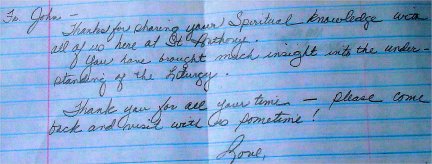 Fr. John -
Thanks for sharing your Spiritual knowledge with
all of us here at St. Anthony.
You have brought much insight into the under-
standing of the Liturgy.
Thank you for all your time — please come
back and visit with us sometime!
Love,